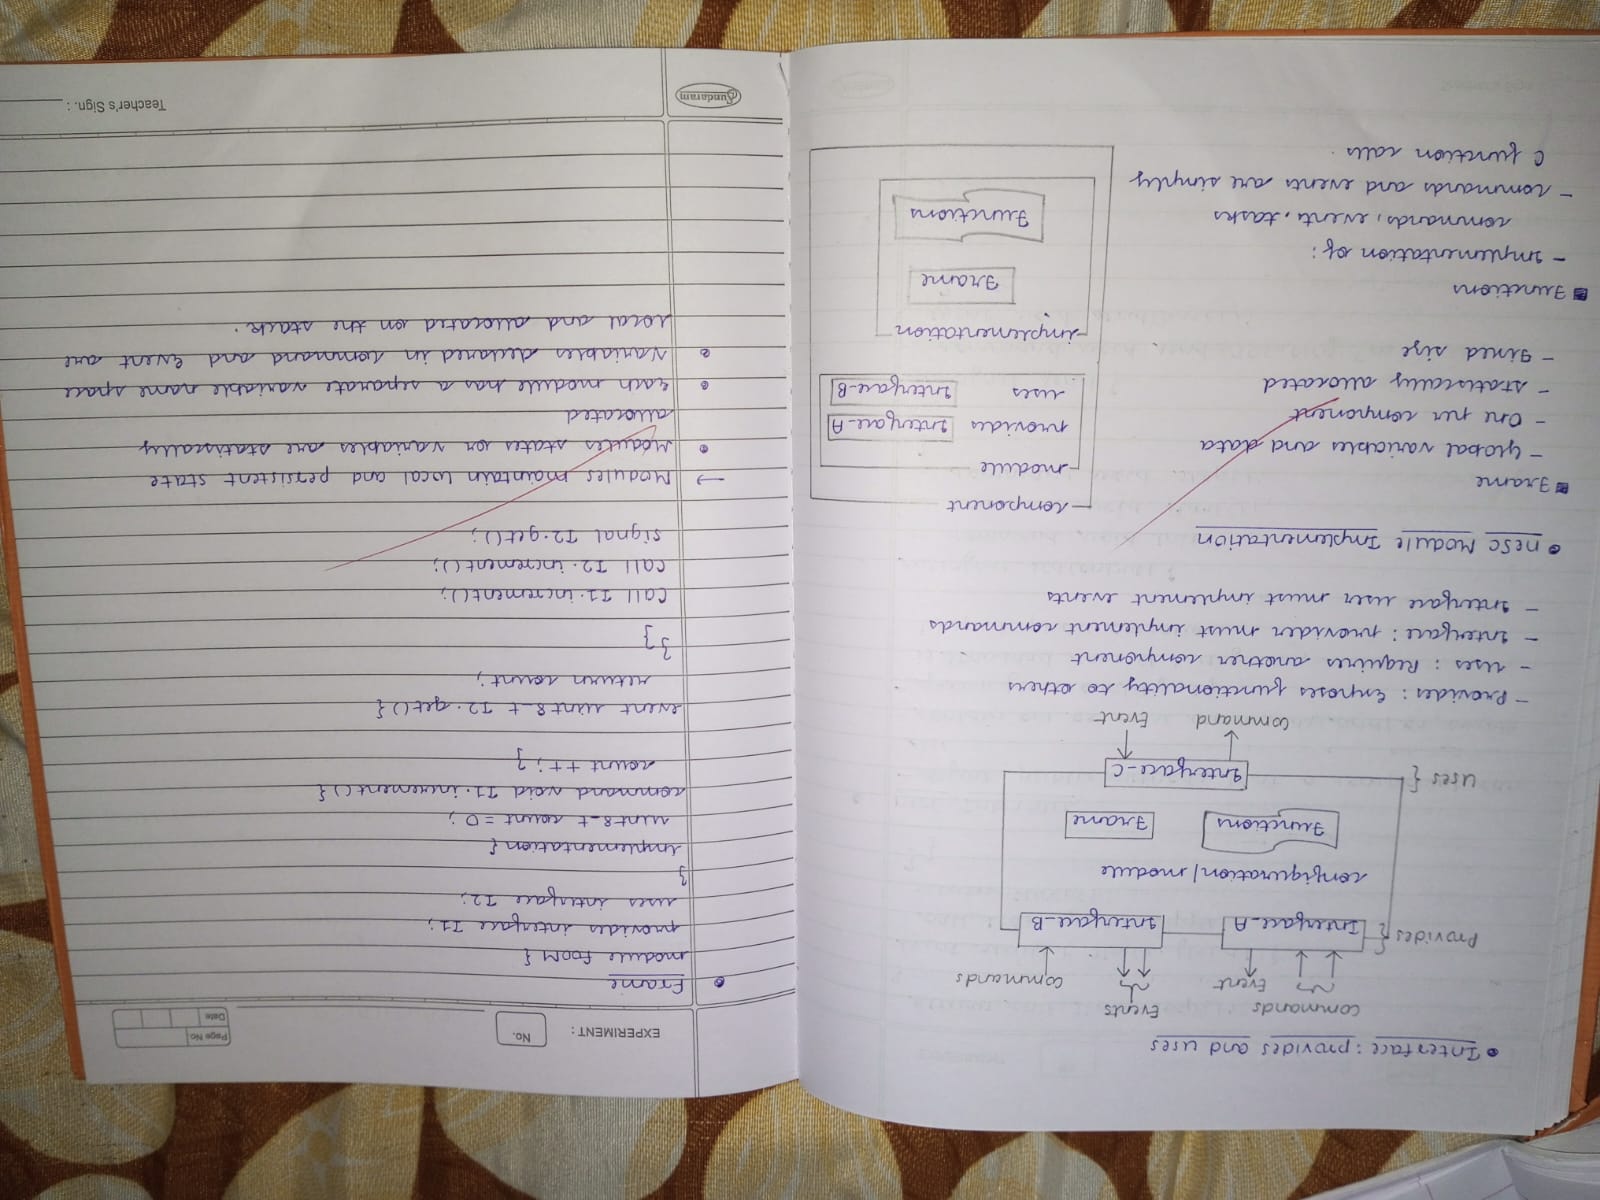 • Interface: provides and uses
Commands
Event
Events
Commands
Provides {
Interface-A
Interface-B
configuration/module
Functions
Frame
Uses {
Interface-C
Command
Event
- Provides: Exposes functionality to others
- Uses: Requires another component
- Interface: provider must implement commands
- Interface user must implement events
• nesC Module Implementation
■ Frame
- Global variables and data
- One per component
- statiscally allocated
- Fixed size
■ Functions
- Implementation of:
commands, events, tasks
- Commands and events are simply
C function calls.
component
module
provides Interface-A
uses Interface-B
implementation
Frame
Functions
EXPERIMENT:
No.
Page No.
Date
• Frame
module FooM {
provides interface I1;
uses interface I2;
}
implementation {
uint8-t count = 0;
command void I1.increment() {
count ++; }
event uint8-t I2.get() {
return count;
}}
Call I1.increment();
Call I2.increment();
signal I2.get();
→ Modules maintain local and persistent state
• Modules states or variables are statiscally
allocated
• Each module has a separate variable name space
• Variables declared in command and event are
local and allocated on the stack.
Sundaram
Teacher's Sign.: